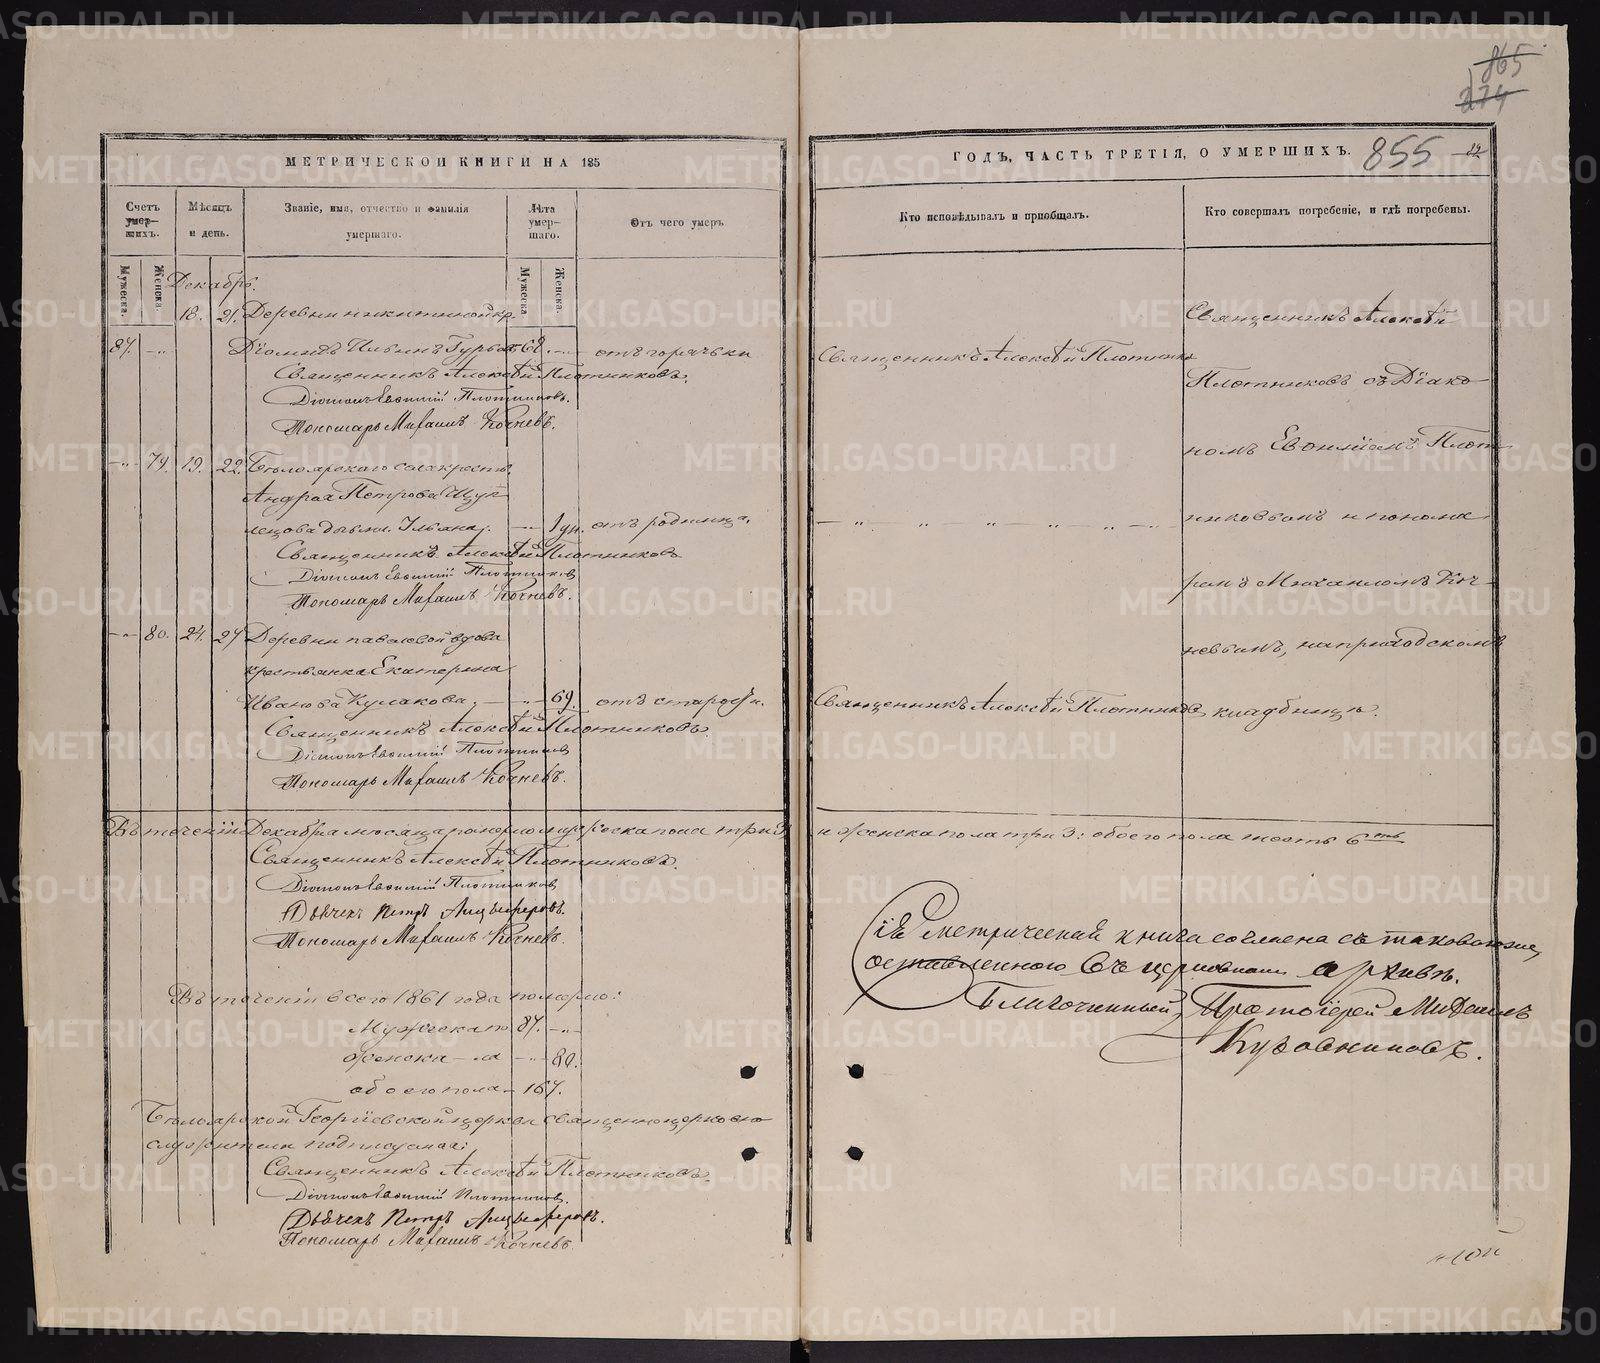 865
274
МЕТРИЧЕСКОЙ КНИГИ НА 185
ГОДЪ, ЧАСТЬ ТРЕТІЯ, О УМЕРШИХЪ.
855
Счетъ умер-шихъ.
Мѣсяцъ и день.
Званіе, имя, отчество и фамилія умершаго.
Лѣта умер-шаго.
Отъ чего умеръ
Кто исповѣдывалъ и пріобщалъ.
Кто совершалъ погребеніе, и гдѣ погребены.
Мужеска.
Женска.
Мужеска
Женска.
Декабрь.
18. 21. Деревни Никитиной кр.
87. -"- Діомидъ Ильинъ Гурьевъ 68. -"- отъ горячки
Священникъ Алексѣй Плотниковъ
Священникъ Алексѣй Плотниковъ.
Діаконъ Евѳимій Плотниковъ.
Пономарь Михаилъ Кочневъ.
-"- 79. 19. 22. Бѣлоярского села крест.
Андрея Петрова
дочь Ульяна. -"- 1 дн. отъ родимца.
Священникъ Алексѣй Плотниковъ
Діаконъ Евѳимій Плотниковъ
Пономарь Михаилъ Кочневъ.
-"- 80. 24. 27 Деревни Павловой вдова
крестьянка Екатерина
Иванова Кулакова. -"- 69. отъ старости.
Священникъ Алексѣй Плотниковъ
Священникъ Алексѣй Плотниковъ.
Діаконъ Евѳимій Плотниковъ
Пономарь Михаилъ Кочневъ.
Священникъ Алексѣй
Плотниковъ съ Діако-
номъ Евѳиміемъ Плот-
никовымъ и понома-
ремъ Михаиломъ Коч-
невымъ, на приходскомъ
кладбищѣ.
Въ теченіи Декабря мѣсяца померло мужеска пола три 3 и женска пола три 3: обоего пола шесть 6ть
Священникъ Алексѣй Плотниковъ.
Діаконъ Евѳимій Плотниковъ
Дьячекъ Петръ Анцыферовъ.
Пономарь Михаилъ Кочневъ.
Въ теченіи всего 1861 года померло:
Мужеска по 87. -"-
женска - ла -"- 80.
обоего пола - 167.
Бѣлоярской Георгіевской церкви священноцерковно-
служители подписуемся:
Священникъ Алексѣй Плотниковъ.
Діаконъ Евѳимій Плотниковъ.
Дьячекъ Петръ Анцыферовъ.
Пономарь Михаилъ Кочневъ.
Сія метрическая книга сличена съ таковоюже,
оставленною въ церковномъ архивѣ.
Благочинный, Протоіерей Михаилъ
Кузовниковъ.
METRIKI.GASO-URAL.RU